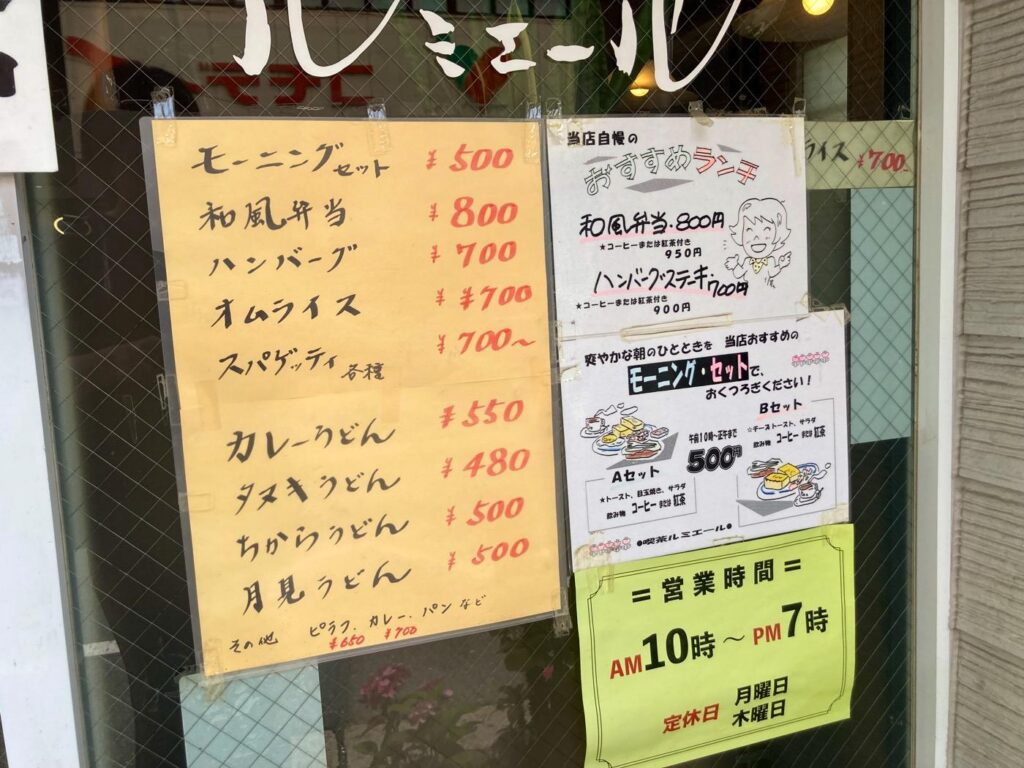 ルミエール
モーニングセット ¥500
和風弁当 ¥800
ハンバーグ ¥700
オムライス ¥¥700
スパゲッティ各種 ¥700〜
カレーうどん ¥550
タヌキうどん ¥480
ちからうどん ¥500
月見うどん ¥500
その他 ピラフ、カレー、パンなど
¥650 ¥700
当店自慢の
おすすめランチ
和風弁当・800円
★コーヒーまたは紅茶付き
950円
ハンバーグステーキ・700円
★コーヒーまたは紅茶付き
900円
ライス ¥700
爽やかな朝のひとときを 当店おすすめの
モーニング・セットで、
おくつろぎください!
Bセット
☆チーズトースト、サラダ
飲み物 コーヒー または 紅茶
午前10時〜正午まで
500円
Aセット
★トースト、目玉焼き、サラダ
飲み物 コーヒー または 紅茶
●喫茶ルミエール●
=営業時間=
AM10時〜PM7時
定休日 月曜日
木曜日